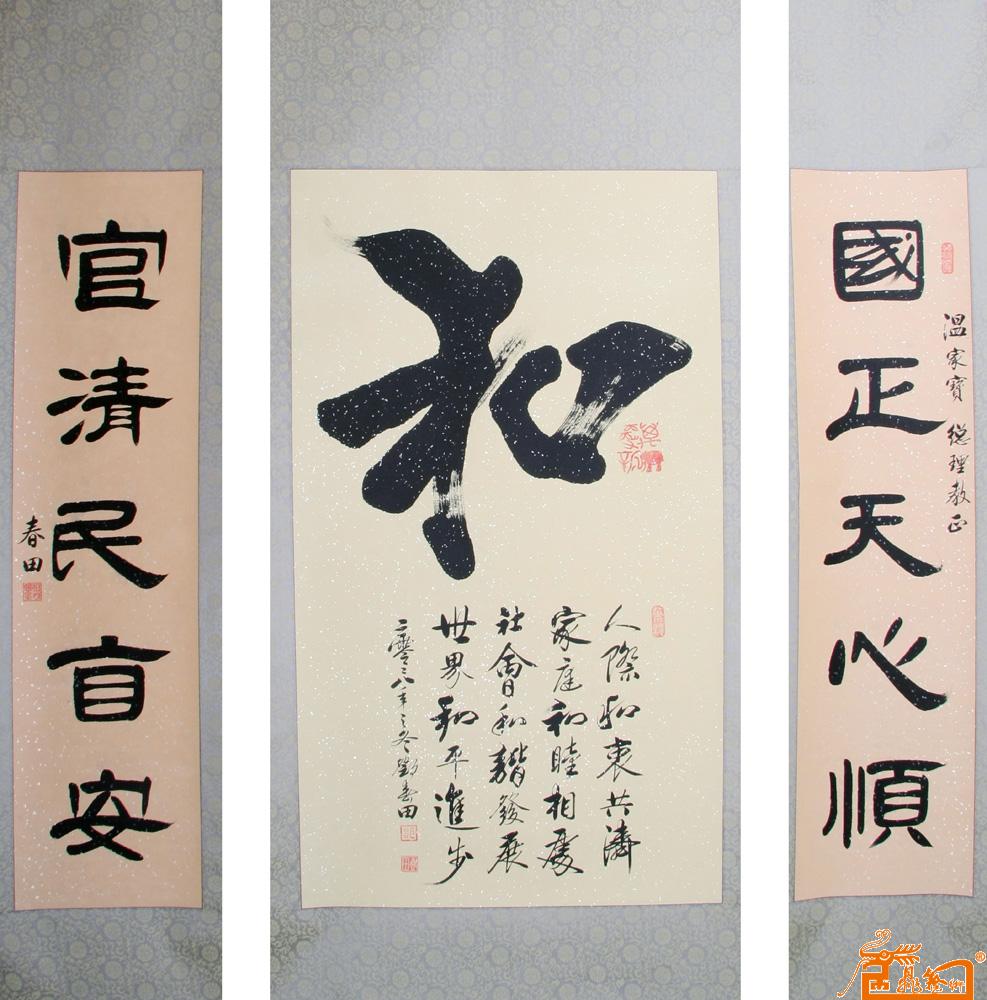 國正天心順
溫家寶 總理教正
和
人際和衷共濟
家庭和睦相處
社會和諧發展
世界和平進步
二零零八年之冬劉春田
官清民自安
春田